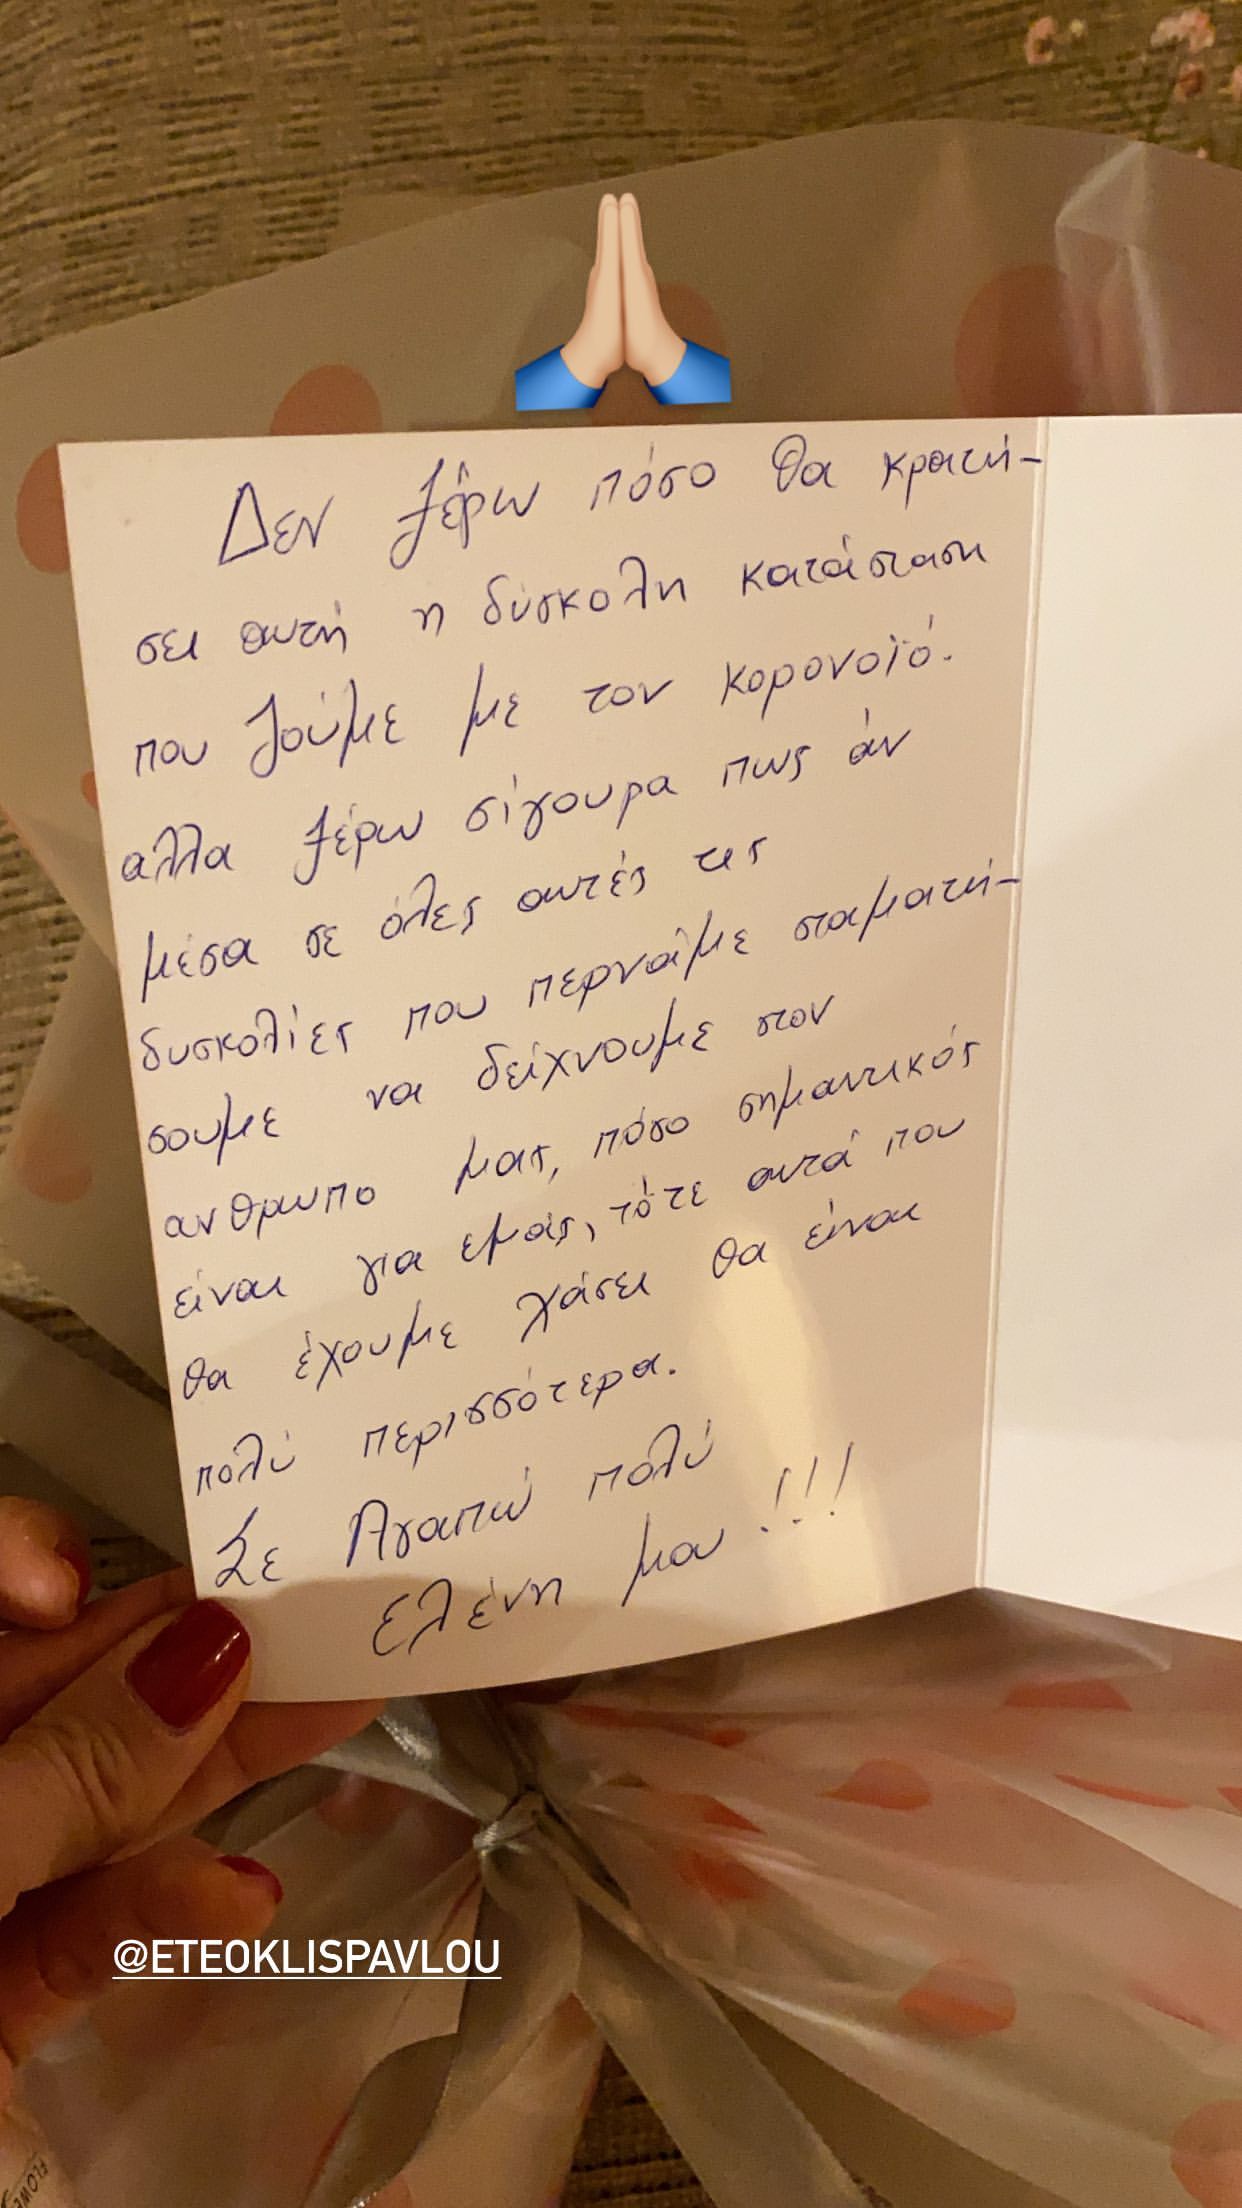 Δεν ξέρω πόσο θα κρατή-
σει αυτή η δύσκολη κατάσταση
που ζούμε με τον κορονοϊό.
αλλα ξέρω σίγουρα πως άν
μέσα σε όλες αυτές τις
δυσκολίες που περνάμε σταματή-
σουμε να δείχνουμε στον
ανθρωπο μας, πόσο σημαντικός
είναι για εμάς, τότε αυτά που
θα έχουμε χάσει θα είναι
πολύ περισσότερα.
Σε Αγαπώ πολύ
Ελένη μου !!!
@ETEOKLISPAVLOU
FLOWE